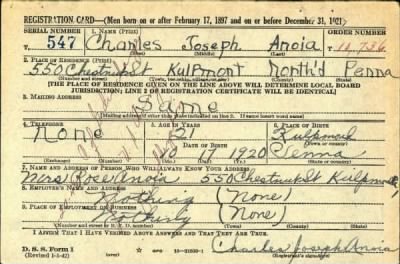 REGISTRATION CARD—(Men born on or after February 17, 1897 and on or before December 31, 1921)
SERIAL NUMBER 1. NAME (Print) ORDER NUMBER
T 547 Charles Joseph Anoia T 11,736
2. PLACE OF RESIDENCE (Print)
550 Chestnut St Kulpmont North'd Penna
[THE PLACE OF RESIDENCE GIVEN ON THE LINE ABOVE WILL DETERMINE LOCAL BOARD
JURISDICTION; LINE 2 OF REGISTRATION CERTIFICATE WILL BE IDENTICAL]
3. MAILING ADDRESS
Same
[Mailing address if other than place indicated on line 2. If same insert word same]
4. TELEPHONE 5. AGE IN YEARS 6. PLACE OF BIRTH
None 21
DATE OF BIRTH (Town or county)
1920 Penna
7. NAME AND ADDRESS OF PERSON WHO WILL ALWAYS KNOW YOUR ADDRESS
Mrs Anoia 550 Chestnut St Kulpmont
8. EMPLOYER'S NAME AND ADDRESS
Nothing (None)
9. PLACE OF EMPLOYMENT OR BUSINESS
(None)
I AFFIRM THAT I HAVE VERIFIED ABOVE ANSWERS AND THAT THEY ARE TRUE.
D. S. S. Form 1 Charles Joseph Anoia
(Revised 1-1-42)